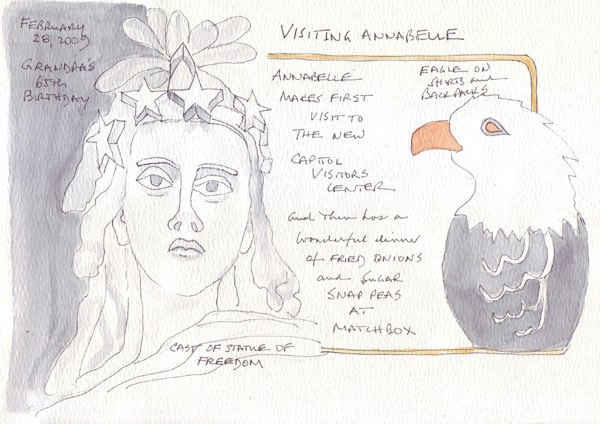 FEBRUARY
28, 2009
GRANDPA'S
65th
BIRTHDAY
VISITING ANNABELLE
ANNABELLE
MAKES FIRST
VISIT TO
THE NEW
CAPITOL
VISITORS
CENTER
and Then has a
wonderful dinner
of FRIED ONIONS
and SUGAR
SNAP PEAS
AT
MATCHBOX
EAGLE ON
SHIRTS and
BACKPACKS
CAST OF STATUE OF
FREEDOM